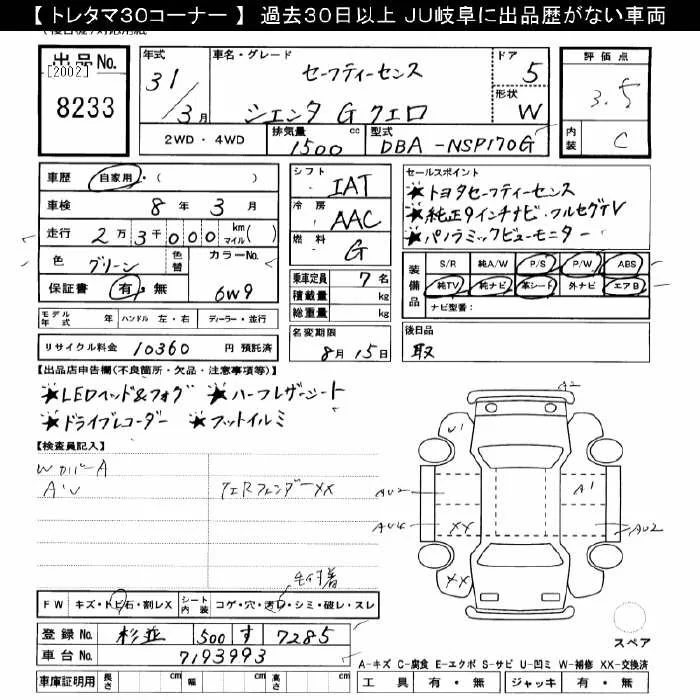 【トレタマ30コーナー】 過去30日以上 JU岐阜に出品歴がない車両
出品No.
[2002]
8233
年式 31/3月
車名・グレード セーフティーセンス
シエンタ G クエロ
ドア 5
形状 W
2WD・4WD
排気量 1500 cc
型式 DBA-NSP170G
評価点 3.5
内装 C
車歴 自家用・( )
車検 8年 3月
走行 2万3千000 km マイル( )
色 グリーン 色替 カラーNo. 6W9
保証書 有・無
シフト IAT
冷房 AAC
燃料 G
乗車定員 7名
積載量 kg
総重量 kg
セールスポイント
★トヨタセーフティーセンス
★純正9インチナビ・フルセグTV
★パノラミックビューモニター
装備品 S/R 純A/W P/S P/W ABS
純TV 純ナビ 革シート 外ナビ エアB
ナビ型番:
モデル年式 年 ハンドル 左・右 ディーラー・並行
リサイクル料金 10360 円 預託済
名変期限 8月15日
後日品
取
【出品店申告欄(不良箇所・欠品・注意事項等)】
★LEDヘッド&フォグ ★ハーフレザーシート
★ドライブレコーダー ★フットイルミ
【検査員記入】
WカバーA
A'U
クエRフェンダーXX
A2
W1
AU2
A1
AU4
XX
AU2
XX
FW キズ・トビ石・割レX シート内装 コゲ・穴・汚レ・シミ・破レ・スレ
登録No. 杉並 500 す 7285
車台No. 7193993
スペア
A-キズ C-腐食 E-エクボ S-サビ U-凹ミ W-補修 XX-交換済
車庫証明用 長さ cm 幅 cm 高さ cm
工具 有・無 ジャッキ 有・無